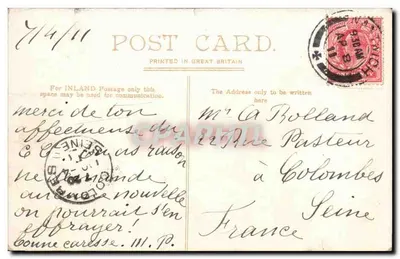 7/4/11
POST CARD.
PRINTED IN GREAT BRITAIN
For INLAND Postage only this
space may be used for communication.
The Address only to be written
here
merci de ton
affectueuse
as raison
ne demande
nouvelle
on pourrait s'en
effrayer!
Bonne caresse. M. P.
Mr A Rolland
22 Rue Pasteur
à Colombes
Seine
France
9.30 AM
AP 8
11
COLOMBES
SEINE